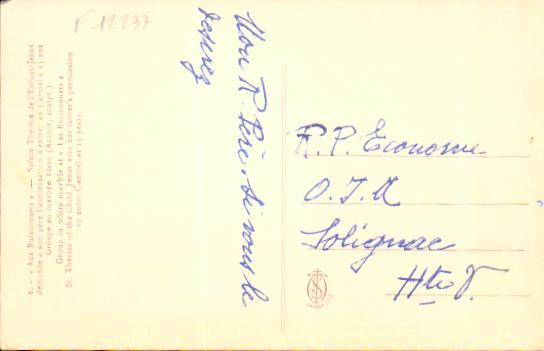 F 12237
6. - « Aux Buissonnets » — Sainte Thérèse de l'Enfant-Jésus
demande à son père l'autorisation d'entrer au Carmel à 15 ans
Groupe en marbre blanc (Alliot, sculpt.)
Group in white marble at « Les Buissonnets »
St. Thérèse of the Child Jesus asks her father's permission
to enter Carmel at 15 years.
Mon R. Père, si vous le
désirez
R.P. Econome
Solignac
Hte V.